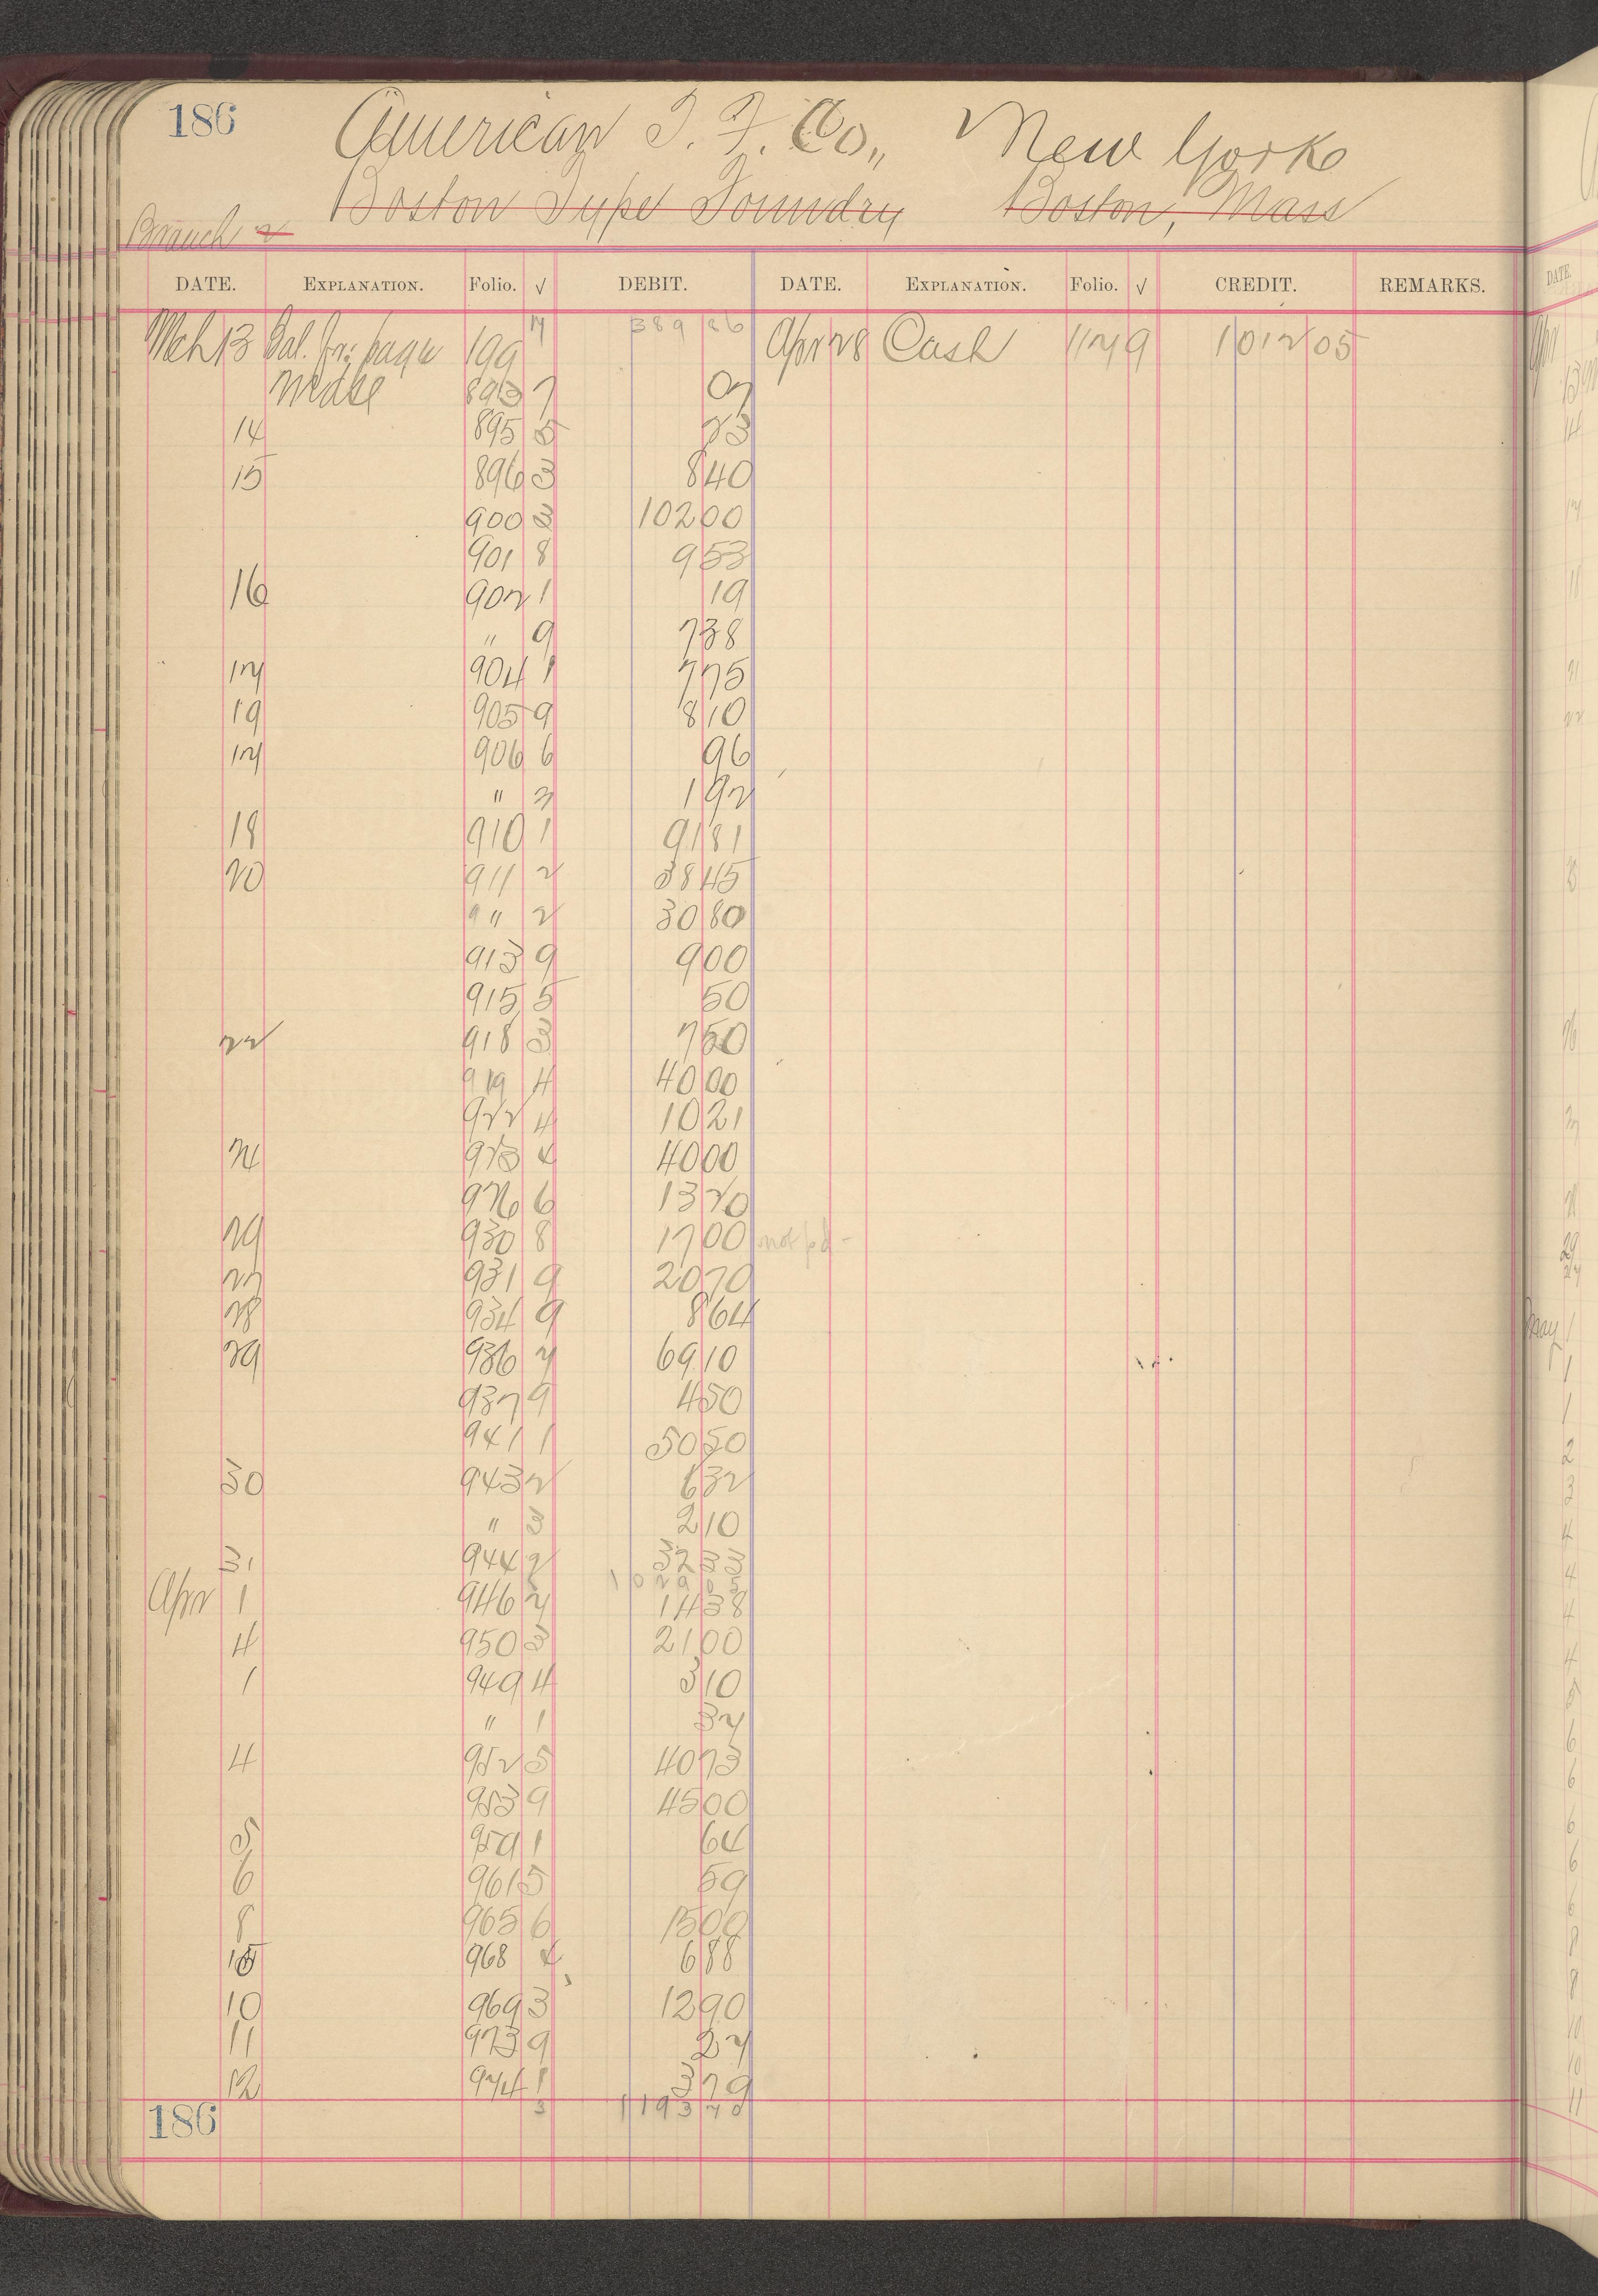 186 American T. F. Co., New York
Boston Type Foundry Boston, Mass
Branch
DATE. EXPLANATION. Folio. √ DEBIT. DATE. EXPLANATION. Folio. √ CREDIT. REMARKS.
Mch 13 Bal. fr. page 199 389 86 Apr 28 Cash 112 9 1012 05
Mdse 893 7 07
14 895 5 23
15 896 3 8 40
900 3 102 00
901 8 9 53
16 902 1 19
" 9 7 38
17 904 1 7 75
19 905 9 8 10
17 906 6 96
" 3 1 92
18 910 1 91 81
20 911 2 38 45
9 " 2 30 80
913 9 9 00
915 5 50
22 918 3 7 50
919 4 40 00
922 4 10 21
24 923 4 40 00
926 6 13 20
29 930 8 17 00 not pd -
27 931 9 20 70
28 934 9 8 64
29 936 7 69 10
937 9 4 50
941 1 50 50
30 943 2 6 32
" 3 2 10
31 944 2 32 33
1029 05
Apr 1 946 7 14 38
4 950 3 21 00
1 949 4 3 10
" 1 37
4 952 5 40 73
953 9 45 00
5 959 1 64
6 961 5 59
8 965 6 15 00
968 4 6 88
10 969 3 12 90
11 973 9 2 7
12 974 1 3 79
3 1193 70
186